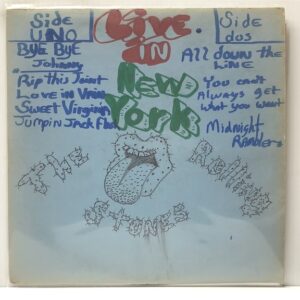 Side
UNO
BYE BYE
Johnny
Rip this Joint
Love in Vain
Sweet Virginia
Jumpin Jack Flash
Live.
IN
New
York
Side
dos
All down the
LINE
You can't
Always get
what you want
Midnight
Rambler
THE
Rolling
STONES